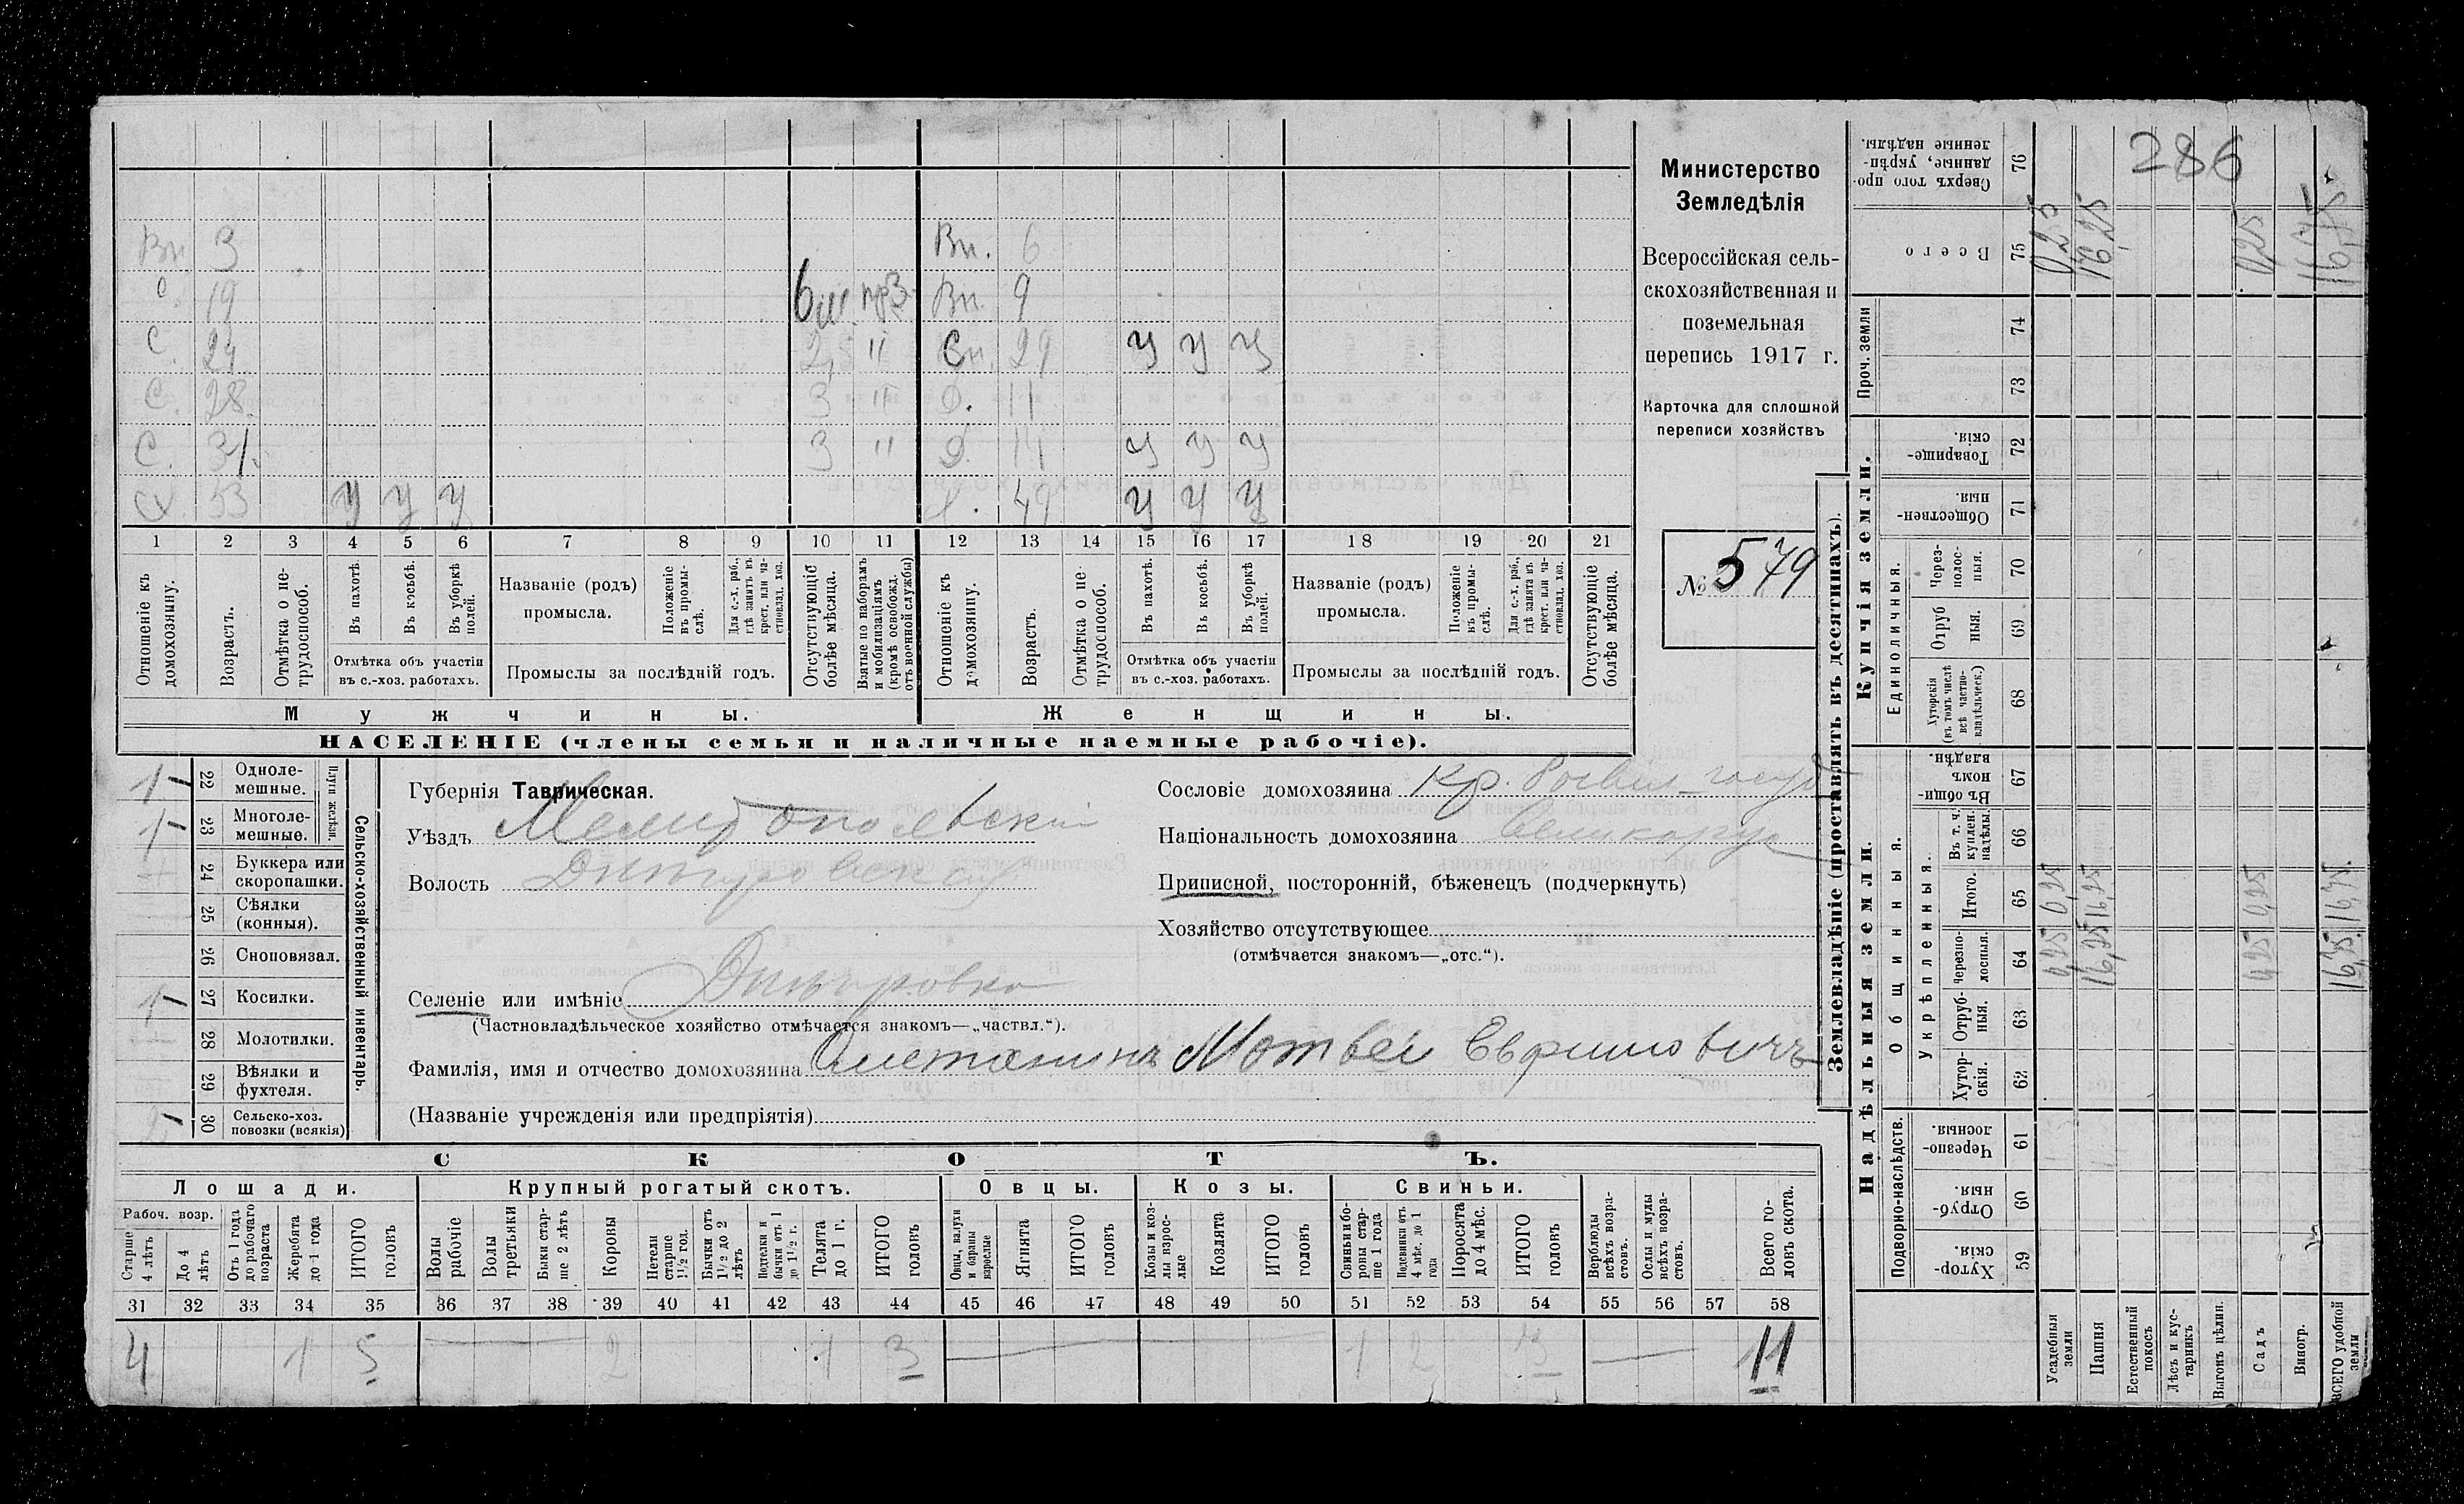 286
Министерство
Земледѣлія
Всероссійская сель-
скохозяйственная и
поземельная
перепись 1917 г.
Карточка для сплошной
переписи хозяйствъ
№ 579
Вн. 3 Вн. 6
С. 19 Вн. 9
С. 24 2,5 " 29 у у у
С. 28 3 " Д. 11
С. 31 3 " Д. 14 у у у
Х 53 у у у 49 у у у
1 2 3 4 5 6 7 8 9 10 11 12 13 14 15 16 17 18 19 20 21
Отношеніе къ домохозяину.
Возрастъ.
Отмѣтка о не-трудоспособ.
Въ пахотѣ.
Въ косьбѣ.
Въ уборкѣ полей.
Отмѣтка объ участіи
въ с.-хоз. работахъ.
Названіе (родъ)
промысла.
Положеніе въ промы-слѣ.
Для с.-х. раб., гдѣ занятъ въ крест. или ча-стновлад. хоз.
Промыслы за послѣдній годъ.
Отсутствующіе болѣе мѣсяца.
Взятые по наборамъ и мобилизаціямъ (кромѣ освобожд. отъ военной службы)
Отношеніе къ домохозяину.
Возрастъ.
Отмѣтка о не-трудоспособ.
Въ пахотѣ.
Въ косьбѣ.
Въ уборкѣ полей.
Отмѣтка объ участіи
въ с.-хоз. работахъ.
Названіе (родъ)
промысла.
Положеніе въ промы-слѣ.
Для с.-х. раб., гдѣ занята въ крест. или ча-стновлад. хоз.
Промыслы за послѣдній годъ.
Отсутствующіе болѣе мѣсяца.
Мужчины. Женщины.
НАСЕЛЕНІЕ (члены семьи и наличные наемные рабочіе).
Сельско-хозяйственный инвентарь.
Плуги желѣзн.
1 22 Одноле-мешные.
1 23 Многоле-мешные.
24 Буккера или скоропашки.
25 Сѣялки (конныя).
26 Сноповязал.
1 27 Косилки.
28 Молотилки.
29 Вѣялки и фухтеля.
2 30 Сельско-хоз. повозки (всякія)
Губернія Таврическая.
Уѣздъ Мелитопольскій
Волость Дмитровская
Селеніе или имѣніе Дмитровка
(Частновладѣльческое хозяйство отмѣчается знакомъ—„частвл.“).
Фамилія, имя и отчество домохозяина Сметанинъ Матвей Ефимовичъ
(Названіе учрежденія или предпріятія)
Сословіе домохозяина Кр.
Національность домохозяина великорус
Приписной, посторонній, бѣженецъ (подчеркнуть)
Хозяйство отсутствующее
(отмѣчается знакомъ—„отс.“).
СКОТЪ.
Лошади. Крупный рогатый скотъ. Овцы. Козы. Свиньи.
Рабоч. возр.
Старше 4 лѣтъ
До 4 лѣтъ
Отъ 1 года до рабочаго возраста
Жеребята до 1 года
ИТОГО головъ
Волы рабочіе
Волы третьяки
Быки стар-ше 2 лѣтъ
Коровы
Нетели старше 1½ год.
Бычки отъ 1½ до 2 лѣтъ
Подтелки и бычки отъ 1 до 1½ г.
Телята до 1 г.
ИТОГО головъ
Овцы, валухи и бараны взрослые
Ягнята
ИТОГО головъ
Козы и коз-лы взрос-лые
Козлята
ИТОГО головъ
Свиньи и бо-ровы стар-ше 1 года
Подсвинки отъ 4 мѣс. до 1 года
Поросята до 4 мѣс.
ИТОГО головъ
Верблюды всѣхъ возра-стовъ.
Ослы и мулы всѣхъ возра-стовъ.
Всего го-ловъ скота.
31 32 33 34 35 36 37 38 39 40 41 42 43 44 45 46 47 48 49 50 51 52 53 54 55 56 57 58
4 1 5 2 1 3 1 2 3 11
Землевладѣніе (проставлять въ десятинахъ).
Надѣльныя земли. Купчія земли. Проч. земли
Подворно-наслѣдств. Общинныя. Единоличныя.
Укрѣпленныя.
Хутор-скія. 59
Отруб-ныя. 60
Черезпо-лосныя. 61
Хутор-скія. 62
Отруб-ныя. 63
Черезпо-лосныя. 64
Итого. 65
Въ т. ч. куплен. надѣлы. 66
Въ общин-номъ владѣн. 67
Хуторскія (въ томъ числѣ всѣ частно-владѣльческ.) 68
Отруб ныя. 69
Через-полос-ныя. 70
Обществен-ныя. 71
Товарище-скія. 72
73
74
Всего 75
Сверхъ того про-данные, укрѣп-ленные надѣлы. 76
Усадебныя земли 0,25 0,25 0,25
Пашня 16,25 16,25 16,25
Естественный покосъ
Лѣсъ и кус-тарникъ
Выгонъ цѣлин.
Садъ 0,25 0,25 0,25
Виногр.
ВСЕГО удобной земли 16,75 16,75 16,75